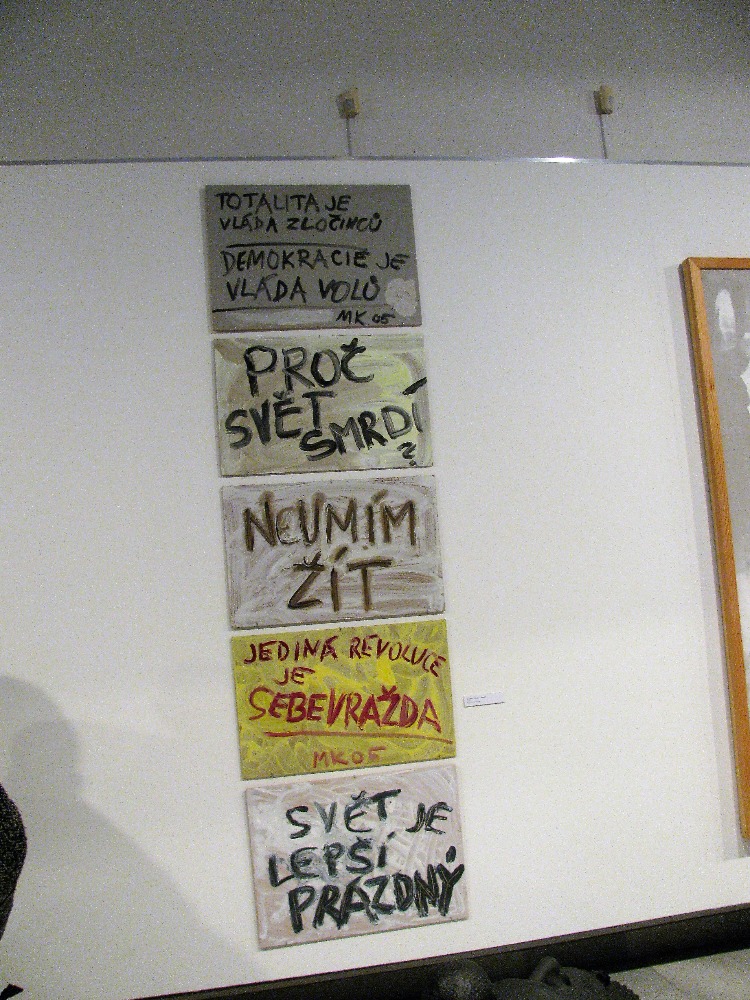 TOTALITA JE
VLÁDA ZLOČINCŮ
DEMOKRACIE JE
VLÁDA VOLŮ
MK 05
PROČ
SVĚT
SMRDÍ
?
NEUMÍM
ŽÍT
JEDINÁ REVOLUCE
JE
SEBEVRAŽDA
MK 05
SVĚT JE
LEPŠÍ
PRÁZDNÝ